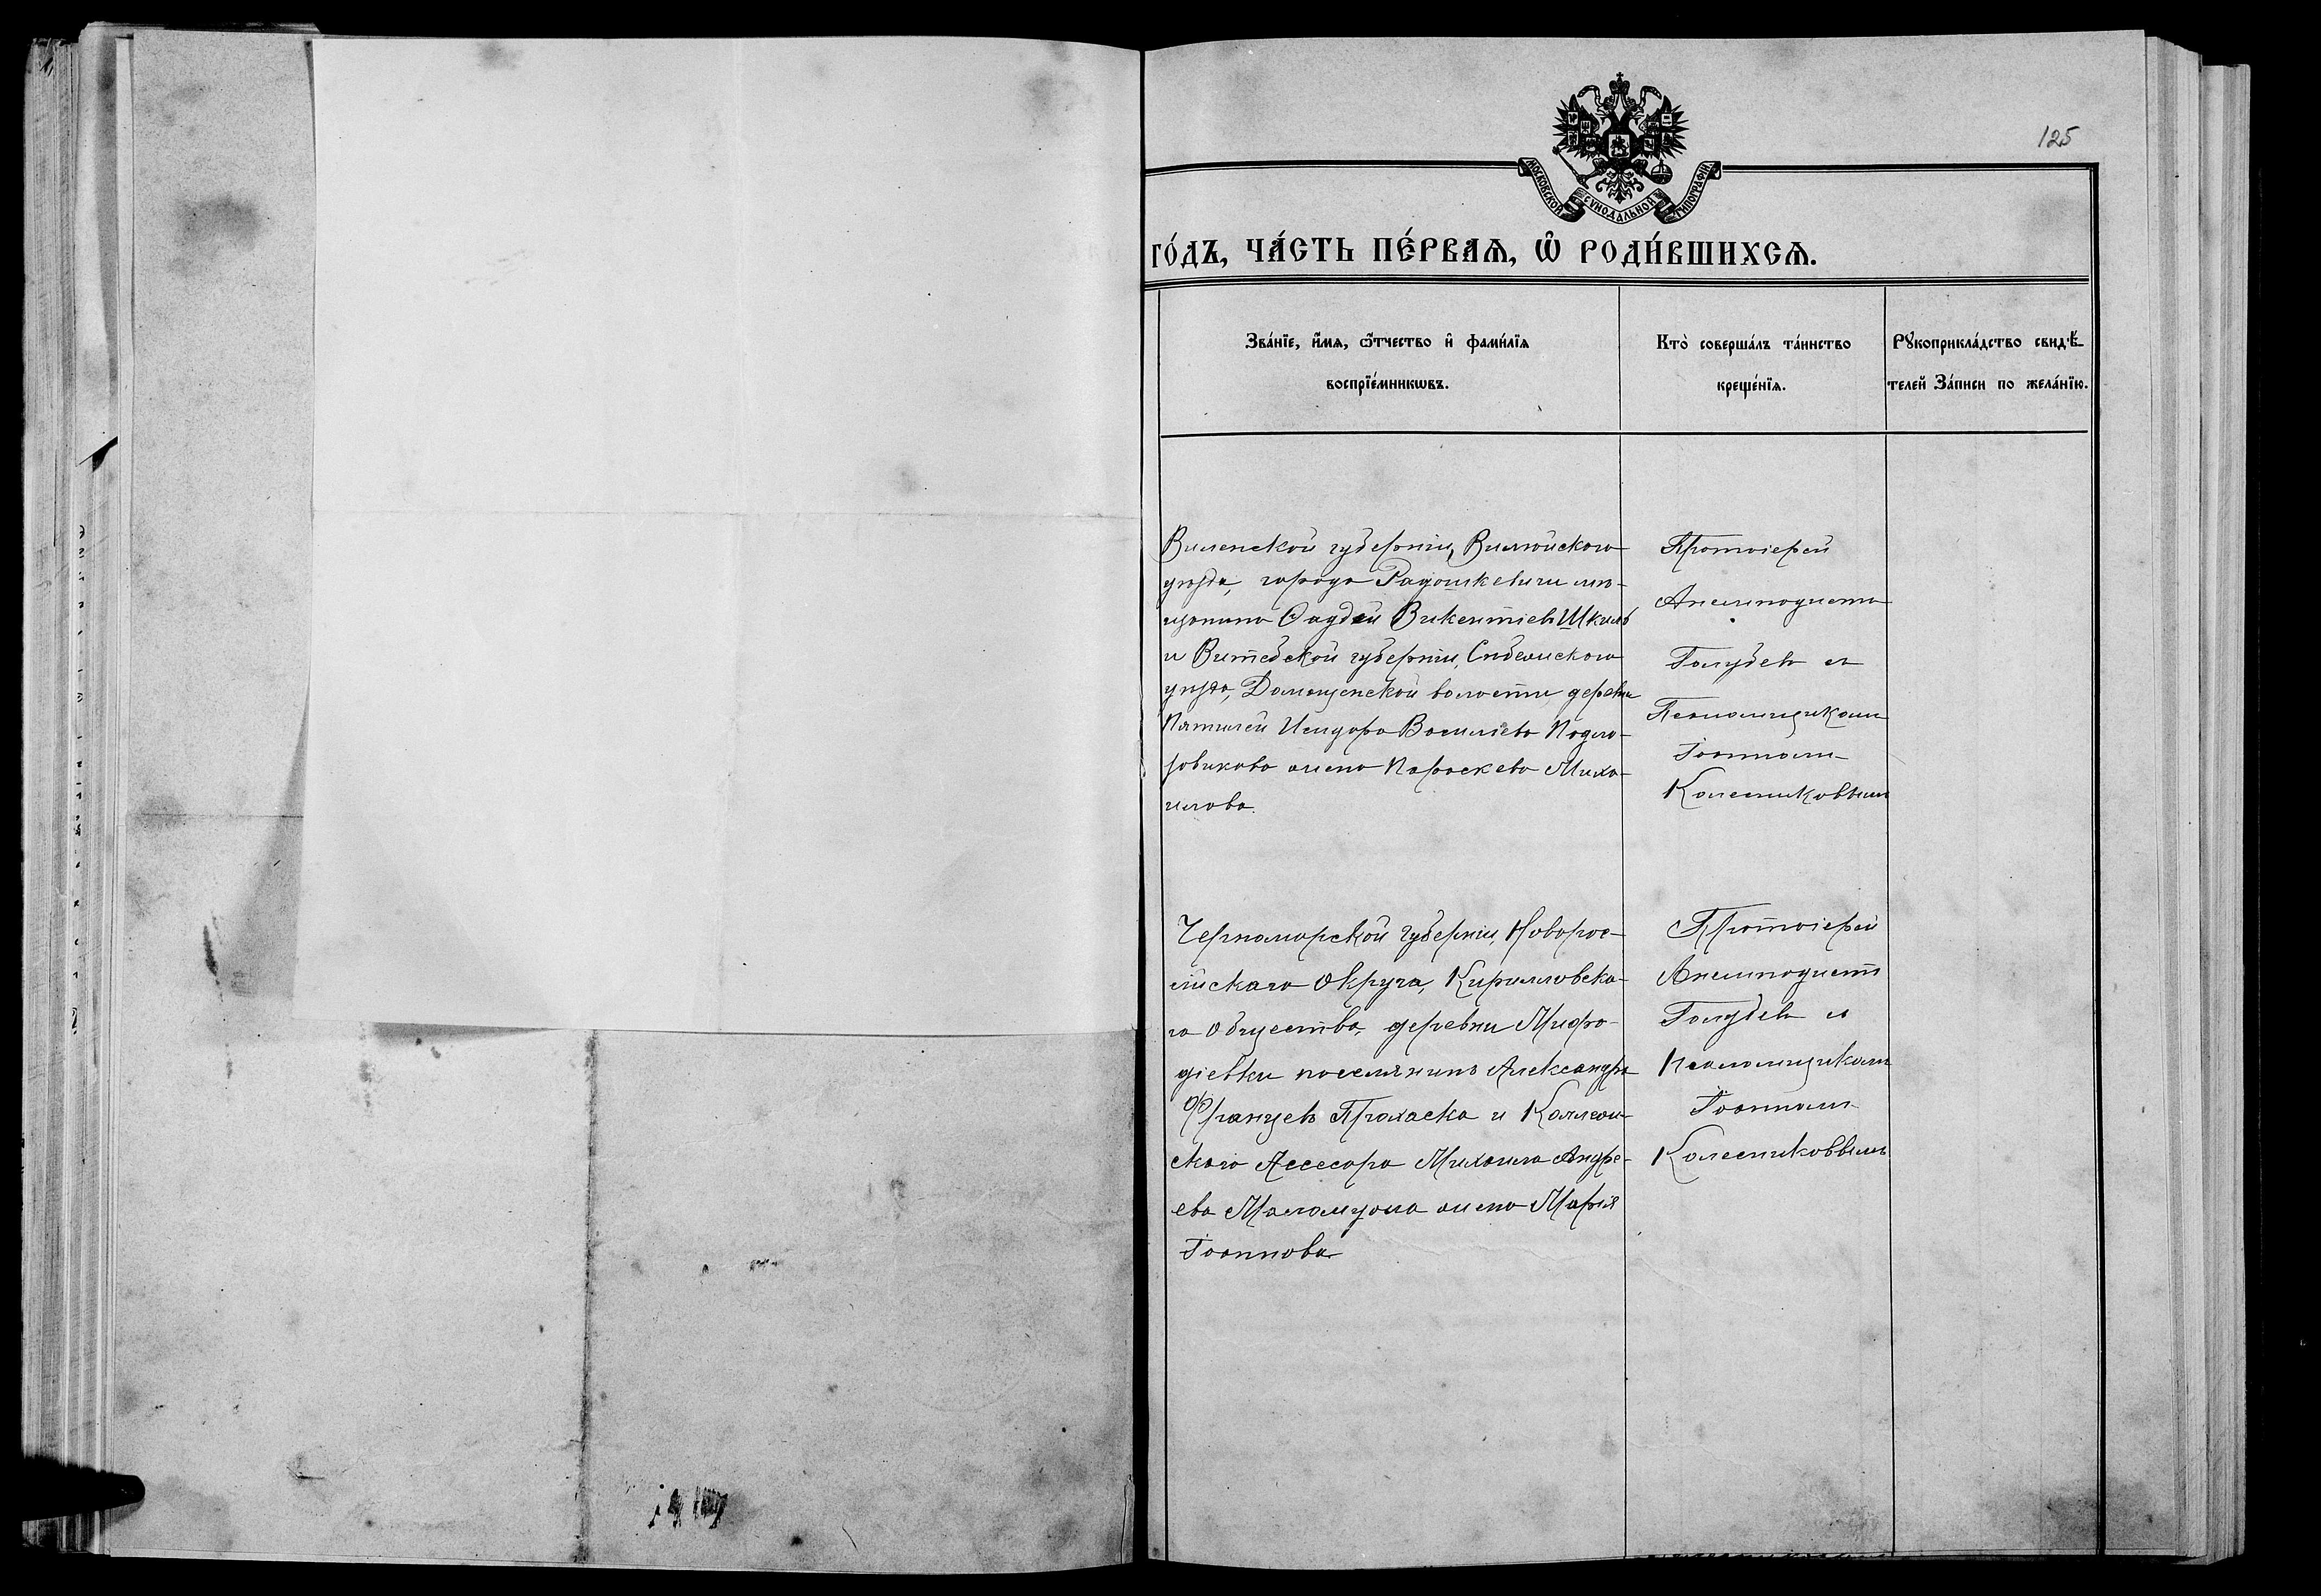 125
МОСКОВСКОЙ СѴНОДАЛЬНОЙ ТИПОГРАФІИ
ГО́ДЪ, ЧА́СТЬ ПЕ́РВАѦ, Ѡ҆ РОДИ́ВШИХСѦ.
Зва́нїе, и҆́мѧ, ѻ҆́тчество и҆ фами́лїѧ
воспрїе́мникѡвъ.
Кто̀ соверша́лъ та́инство
креще́нїѧ.
Рꙋкоприкла́дство свидѣ́-
телей За́писи по жела́нїю.
Виленской губерніи, Вилюйского
уѣзда, города Радошкевичи мѣ-
щанинъ Фаддей Викентіевъ Шкиль
и Витебской губерніи, Себежского
уѣзда, Долощенской волости деревни
Исидора Василіева Подго-
жена Параскева Миха-
илова.
Протоіерей
Анемподистъ
Голубевъ съ
Псаломщикомъ
Іоанномъ
Колесниковымъ
Черноморской Губерніи, Новорос-
сійскаго Округа, Кирилловска-
го Общества, деревни Мефо-
діевки поселянинъ Александръ
Францевъ Прохаска и Коллеж-
скаго Ассесора Михаила Андре-
ева жена Марія
Іоаннова
Протоіерей
Анемподистъ
Голубевъ съ
Псаломщикомъ
Іоанномъ
Колесниковымъ